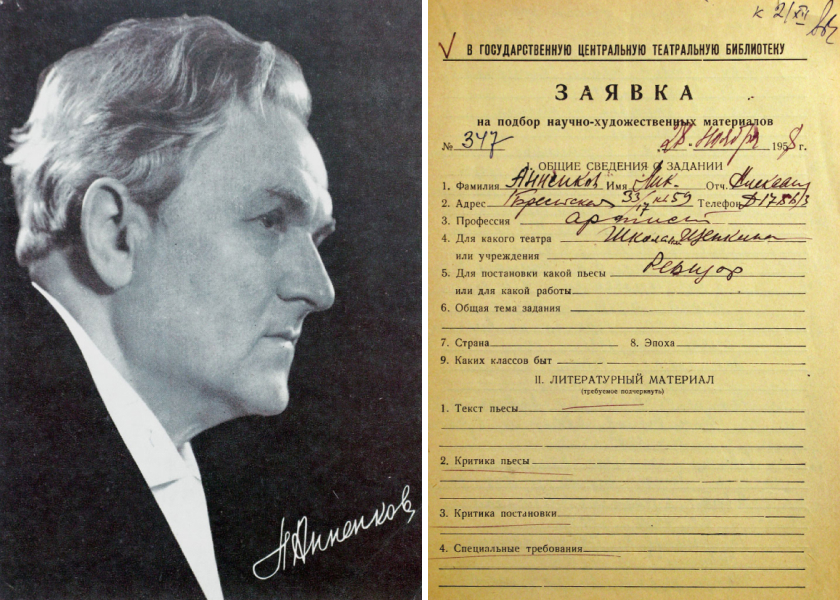 Н Анненков
к 2/XII
В ГОСУДАРСТВЕННУЮ ЦЕНТРАЛЬНУЮ ТЕАТРАЛЬНУЮ БИБЛИОТЕКУ
ЗАЯВКА
на подбор научно-художественных материалов
№ 347 28. Ноября 1958 г.
I. ОБЩИЕ СВЕДЕНИЯ О ЗАДАНИИ
1. Фамилия Анненков Имя Ник. Отч.
2. Адрес Брестская 33/17 кв 59 Телефон
3. Профессия артист
4. Для какого театра Школа Щепкина
или учреждения
5. Для постановки какой пьесы Ревизор
или для какой работы
6. Общая тема задания
7. Страна 8. Эпоха
9. Каких классов быт
II. ЛИТЕРАТУРНЫЙ МАТЕРИАЛ
(требуемое подчеркнуть)
1. Текст пьесы
2. Критика пьесы
3. Критика постановки
4. Специальные требования